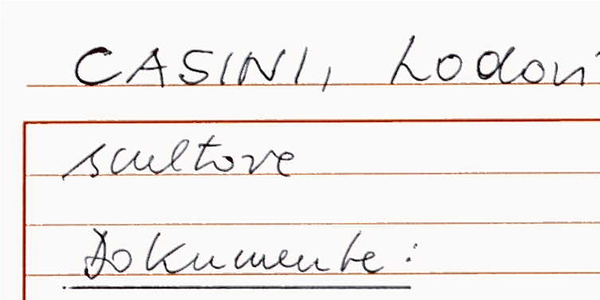 CASINI, Lodovi
scultore
Dokumente: